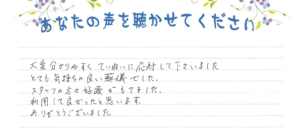 あなたの声を聴かせてください
大変分かりやすくてい寧に応対して下さいました
とても気持ちの良い葬儀でした。
スタッフの方々好感がもてました。
利用して良かったと思います。
ありがとうございました。